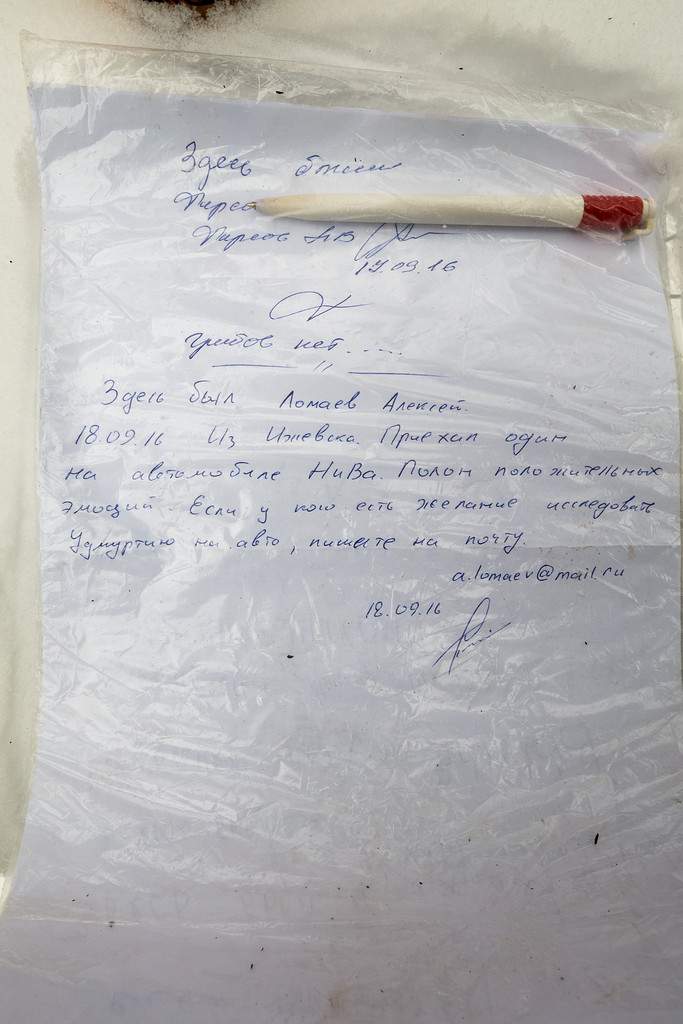 Здесь были
Персов НВ
17.09.16
грибов нет.....
Здесь был Ломаев Алексей.
18.09.16 Из Ижевска. Приехал один
на автомобиле НиВа. Полон положительных
эмоций. Если у кого есть желание исследовать
Удмуртию на авто, пишите на почту.
a.lomaev@mail.ru
18.09.16